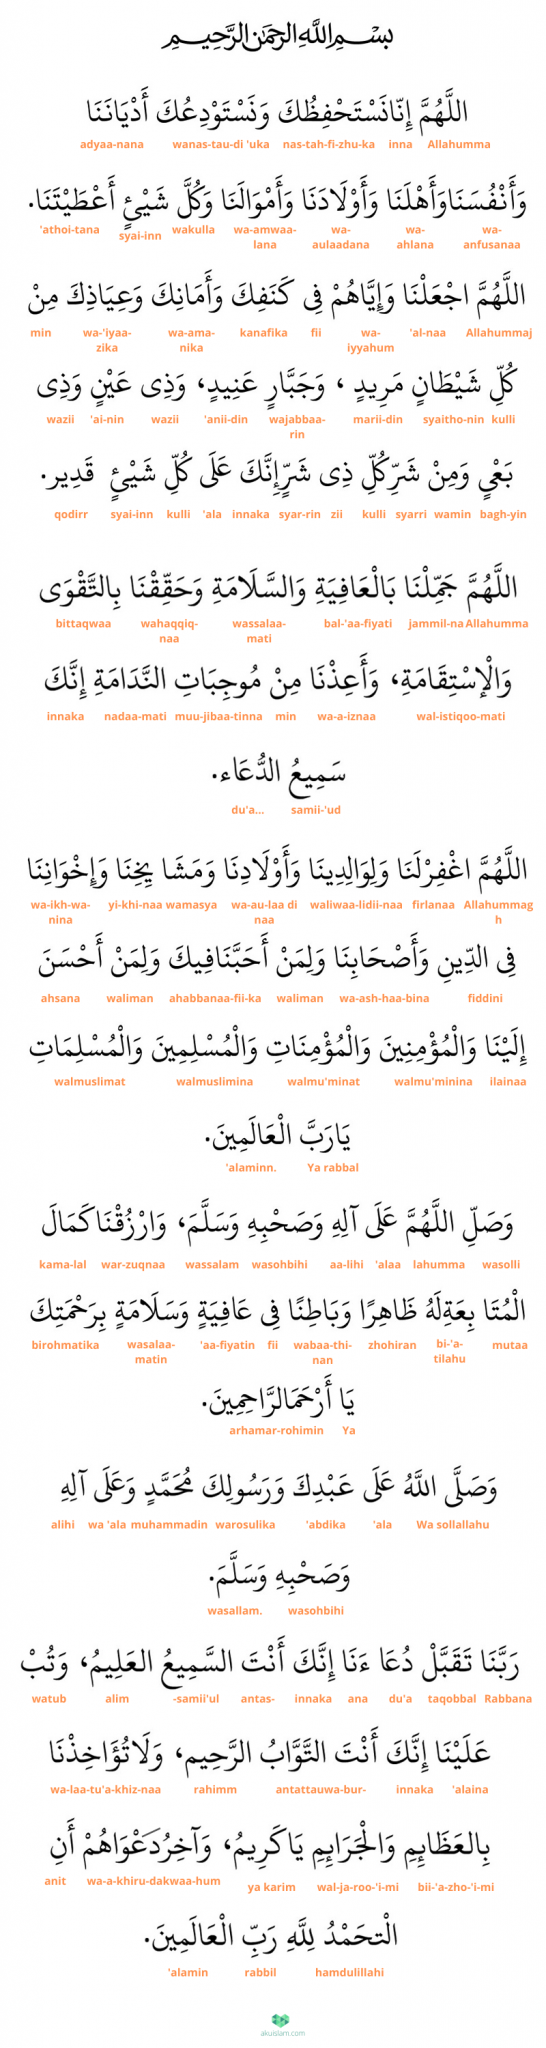 بِسْمِ اللَّهِ الرَّحْمَنِ الرَّحِيمِ
اللَّهُمَّ إِنَّانَسْتَحْفِظُكَ وَنَسْتَوْدِعُكَ أَدْيَانَنَا
adyaa-nana wanas-tau-di 'uka nas-tah-fi-zhu-ka inna Allahumma
وَأَنْفُسَنَاوَأَهْلَنَا وَأَوْلَادَنَا وَأَمْوَالَنَا وَكُلَّ شَيْئٍ أَعْطَيْتَنَا.
'athoi-tana syai-inn wakulla wa-amwaa-lana wa-aulaadana wa-ahlana wa-anfusanaa
اللَّهُمَّ اجْعَلْنَا وَإِيَّاهُمْ فِى كَنَفِكَ وَأَمَانِكَ وَعِيَاذِكَ مِنْ
min wa-'iyaa-zika wa-ama-nika kanafika fii wa-iyyahum 'al-naa Allahummaj
كُلِّ شَيْطَانٍ مَرِيدٍ ، وَجَبَّارٍ عَنِيدٍ، وَذِى عَيْنٍ وَذِى
wazii 'ai-nin wazii 'anii-din wajabbaa-rin marii-din syaitho-nin kulli
بَغْيٍ وَمِنْ شَرِّكُلِّ ذِى شَرٍّإِنَّكَ عَلَى كُلِّ شَيْئٍ قَدِير.
qodirr syai-inn kulli 'ala innaka syar-rin zii kulli syarri wamin bagh-yin
اللَّهُمَّ جَمِّلْنَا بَالْعَافِيَةِ وَالسَّلَامَةِ وَحَقِّقْنَا بِالتَّقْوَى
bittaqwaa wahaqqiq-naa wassalaa-mati bal-'aa-fiyati jammil-na Allahumma
وَالْإسْتِقَامَةِ، وَأَعِذْنَا مِنْ مُوجِبَاتِ النَّدَامَةِ إِنَّكَ
innaka nadaa-mati muu-jibaa-tinna min wa-a-iznaa wal-istiqoo-mati
سَمِيعُ الدُّعَاء.
du'a... samii-'ud
اللَّهُمَّ اغْفِرْلَنَا وَلِوَالِدِينَا وَأَوْلَادِنَا وَمَشَا يِخِنَا وَإِخْوَانِنَا
wa-ikh-wa-nina yi-khi-naa wamasya wa-au-laa di naa waliwaa-lidii-naa firlanaa Allahummag h
فِى الدِّينِ وَأَصْحَابِنَا وَلِمَنْ أَحَبَّنَافِيكَ وَلِمَنْ أَحْسَنَ
ahsana waliman ahabbanaa-fii-ka waliman wa-ash-haa-bina fiddini
إِلَيْنَا وَالْمُؤْمِنِينَ وَالْمُؤْمِنَاتِ وَالْمُسْلِمِينَ وَالْمُسْلِمَاتِ
walmuslimat walmuslimina walmu'minat walmu'minina ilainaa
يَارَبَّ الْعَالَمِينَ.
'alaminn. Ya rabbal
وَصَلِّ اللَّهُمَّ عَلَى آلِهِ وَصَحْبِهِ وَسَلَّمَ، وَارْزُقْنَاكَمَالَ
kama-lal war-zuqnaa wassalam wasohbihi aa-lihi 'alaa lahumma wasolli
الْمُتَا بِعَةِلَهُ ظَاهِرًا وَبَاطِنًا فِى عَافِيَةٍ وَسَلَامَةٍ بِرَحْمَتِكَ
birohmatika wasalaa-matin 'aa-fiyatin fii wabaa-thi-nan zhohiran bi-'a-tilahu mutaa
يَا أَرْحَمَالرَّاحِمِينَ.
arhamar-rohimin Ya
وَصَلَّى اللَّهُ عَلَى عَبْدِكَ وَرَسُولِكَ مُحَمَّدٍ وَعَلَى آلِهِ
alihi wa 'ala muhammadin warosulika 'abdika 'ala Wa sollallahu
وَصَحْبِهِ وَسَلَّمَ.
wasallam. wasohbihi
رَبَّنَا تَقَبَّلْ دُعَا ءَنَا إِنَّكَ أَنْتَ السَّمِيعُ العَلِيمُ، وَتُبْ
watub alim -samii'ul antas- innaka ana du'a taqobbal Rabbana
عَلَيْنَا إِنَّكَ أَنْتَ التَّوَّابُ الرَّحِيم، وَلَاتُؤَاخِذْنَا
wa-laa-tu'a-khiz-naa rahimm antattauwa-bur- innaka 'alaina
بِالعَظَايِمِ وَالْجَرَايِمِ يَاكَرِيمُ، وَآخِرُدَعْوَاهُمْ أَنِ
anit wa-a-khiru-dakwaa-hum ya karim wal-ja-roo-'i-mi bii-'a-zho-'i-mi
الْتحَمْدُ لِلَّهِ رَبِّ الْعَالَمِينَ.
'alamin rabbil hamdulillahi
akuislam.com